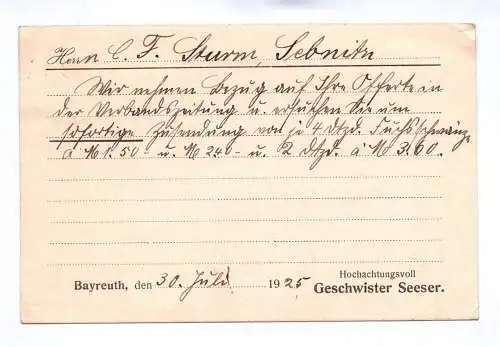 Herrn C. F. Sturm, Sebnitz
Wir nehmen Bezug auf Ihre Offerte in
der Verbandszeitung u. ersuchen Sie um
sofortige Zusendung von je 4 Dtzd. Fuchsschwänze
á M 1.50 - u. M 2.40 - u. 2 Dtzd. á M 3.60.
Bayreuth, den 30. Juli 1925
Hochachtungsvoll
Geschwister Seeser.